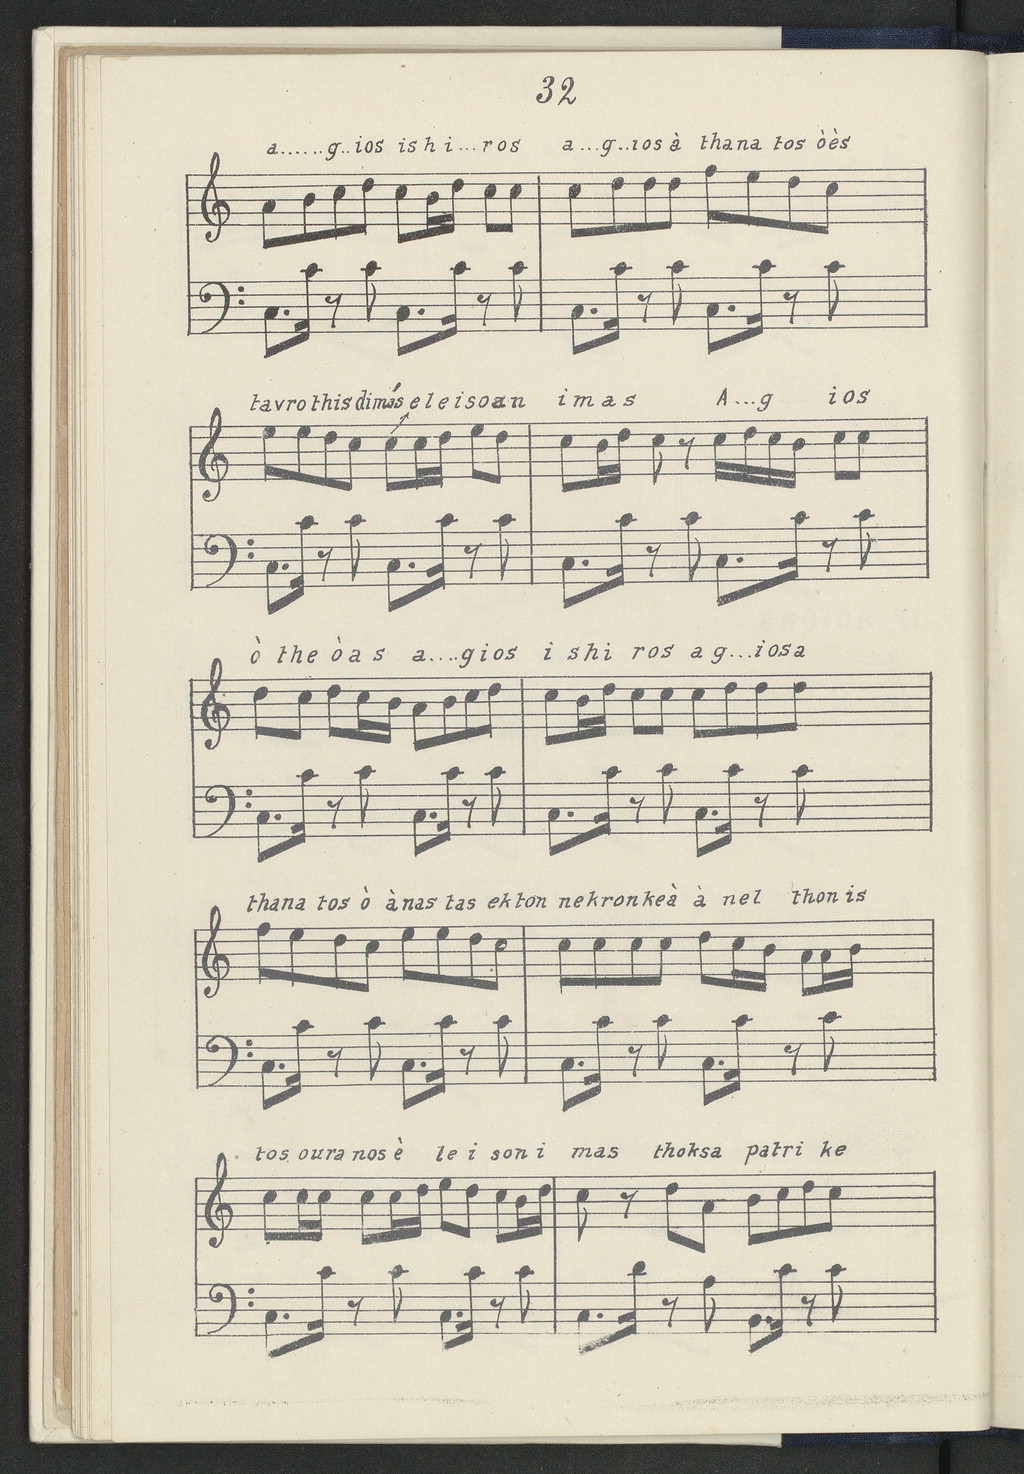 32
a......g..ios ishi...ros a...g..iosà thana tos òès
tavrothisdimàs eleisoan imas A...g ios
ò the òas a....gios ishi ros ag...iosa
thana tos ò ànas tas ekton nekronkeà à nel thonis
tos ouranos è le i son i mas thoksa patri ke